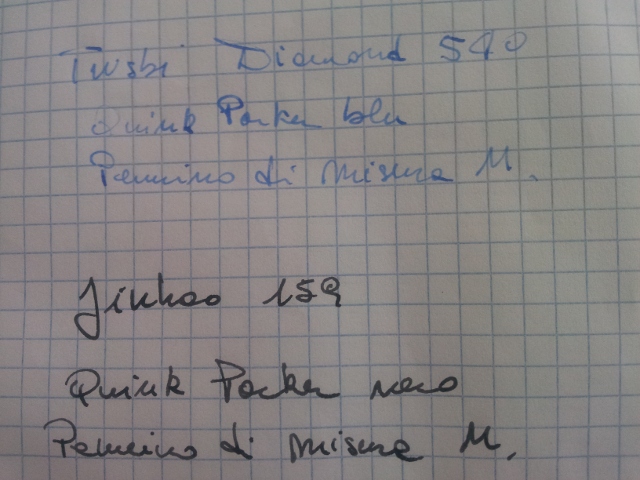 Twsbi Diamond 540
Quink Parker blu
Pennino di misura M.
Jinhao 159
Quink Parker nero
Pennino di misura M.